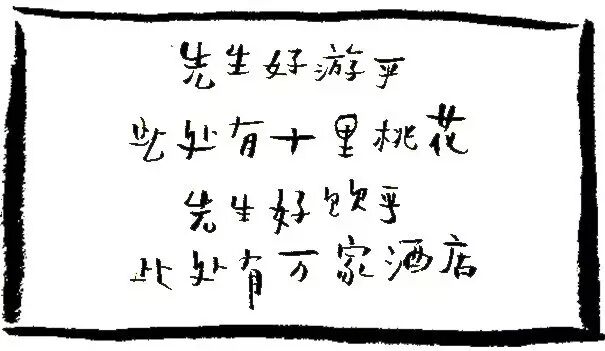 先生好游乎
此处有十里桃花
先生好饮乎
此处有万家酒店